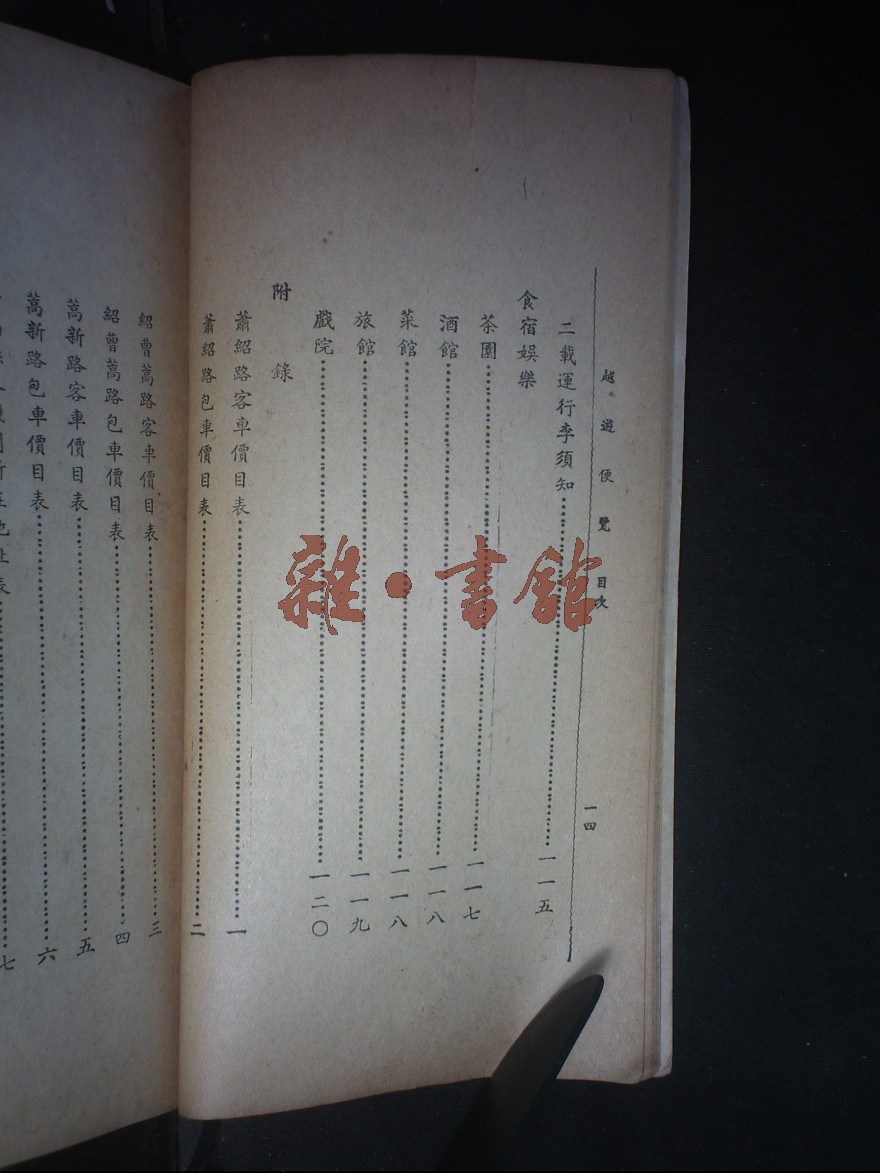 越遊便覽 目次 一四
二載運行李須知 一一五
食宿娛樂
茶園 一一七
酒館 一一八
菜館 一一八
旅館 一一九
戲院 一二〇
附錄
蕭紹路客車價目表 一
蕭紹路包車價目表 二
紹曹蒿路客車價目表 三
紹曹蒿路包車價目表 四
蒿新路客車價目表 五
蒿新路包車價目表 六
所在地址表 七
雜·書館